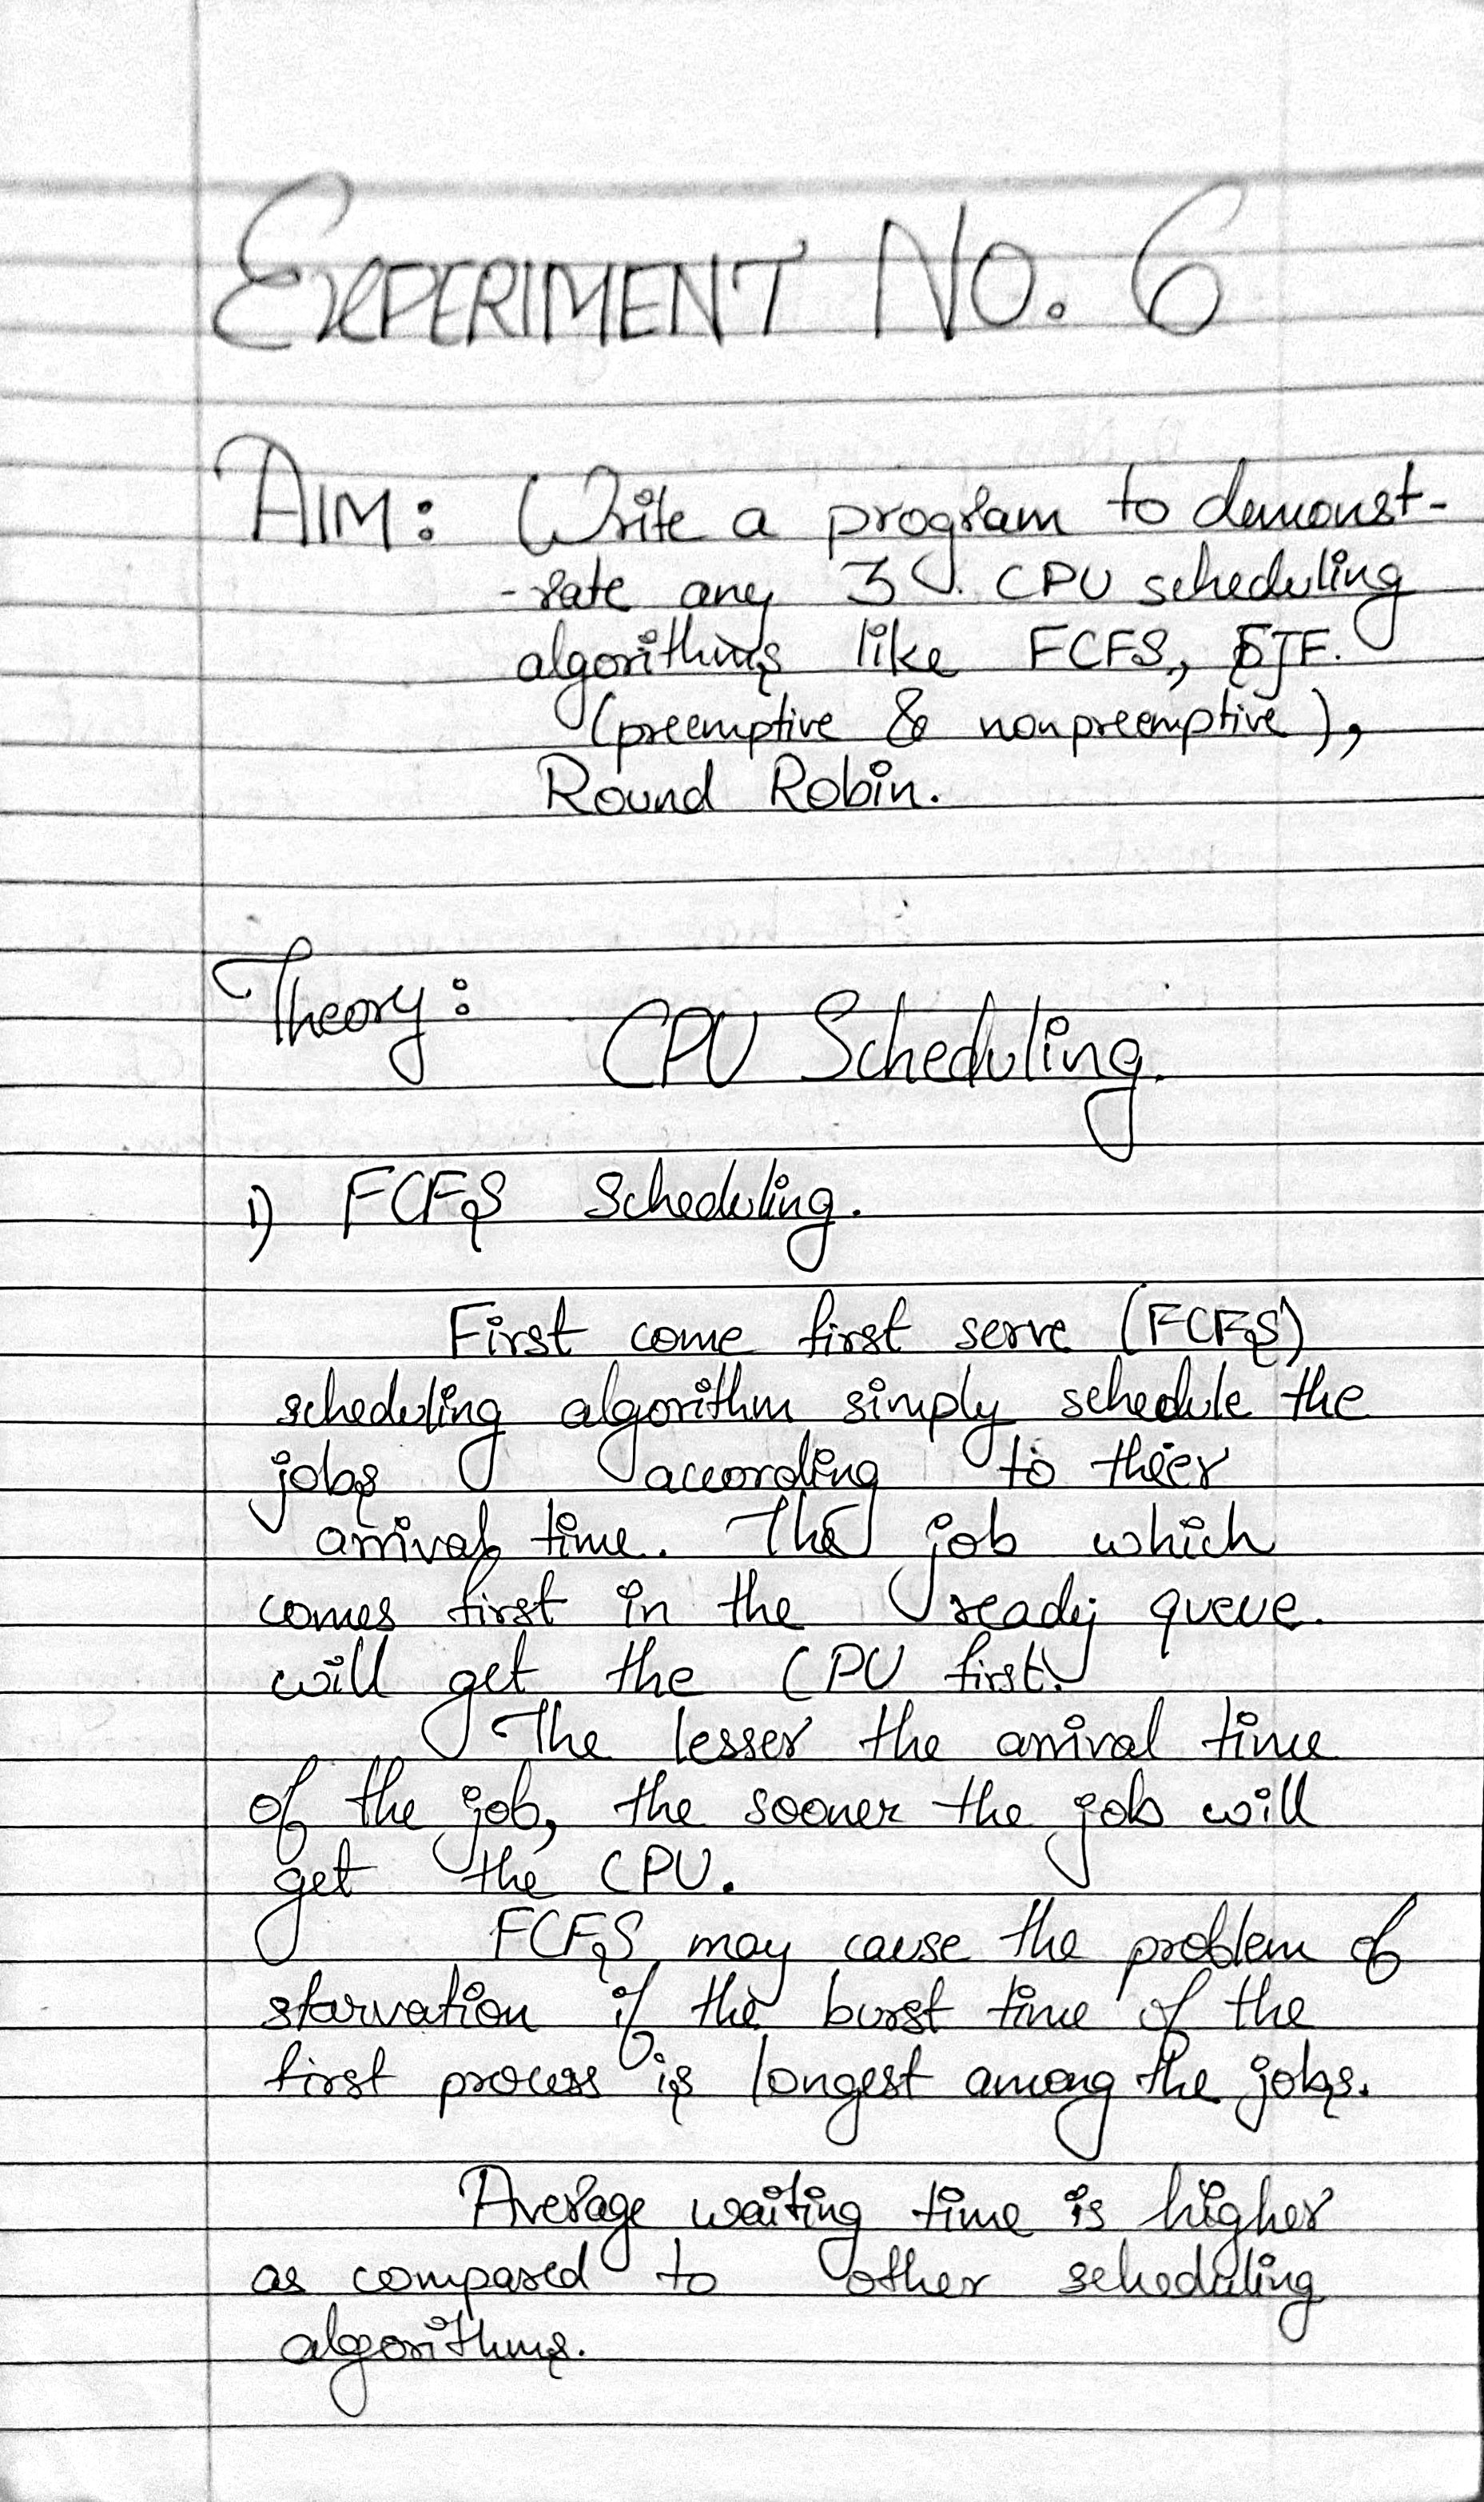 EXPERIMENT NO. 6
AIM: Write a program to demonst-
-rate any 3 CPU scheduling
algorithms like FCFS, SJF.
(preemptive & nonpreemptive),
Round Robin.
Theory:
CPU Scheduling.
1) FCFS Scheduling.
First come first serve (FCFS)
scheduling algorithm simply schedule the
jobs according to thier
arrival time. The job which
comes first in the ready queue.
will get the CPU first.
The lesser the arrival time
of the job, the sooner the job will
get the CPU.
FCFS may cause the problem of
starvation if the burst time of the
first process is longest among the jobs.
Average waiting time is higher
as compared to other scheduling
algorithms.